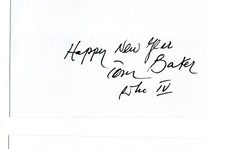 Happy New Year
Tom Baker
Who IV